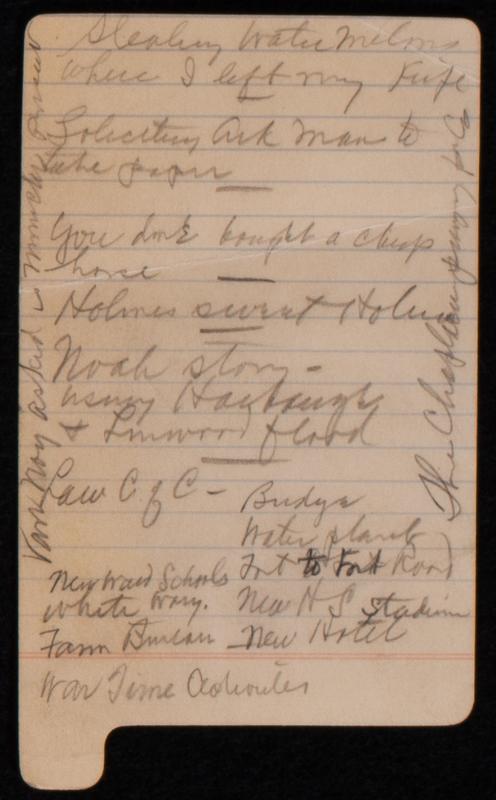 Stealing Water Melons
where I left my Knife
Soliciting Ark Man to
take paper
You don't bought a cheap
horse
Holmes sweet Holmes
Noah story -
using Harbaugh
& Linwood flood
Law C of C -
Bridge
Water plant
Fort to Fort Road
New H S Stadium
New Hotel
New Ward Schools
White Way.
Farm Bureau
War Time Activities
Van Noy asked
The Chaplain